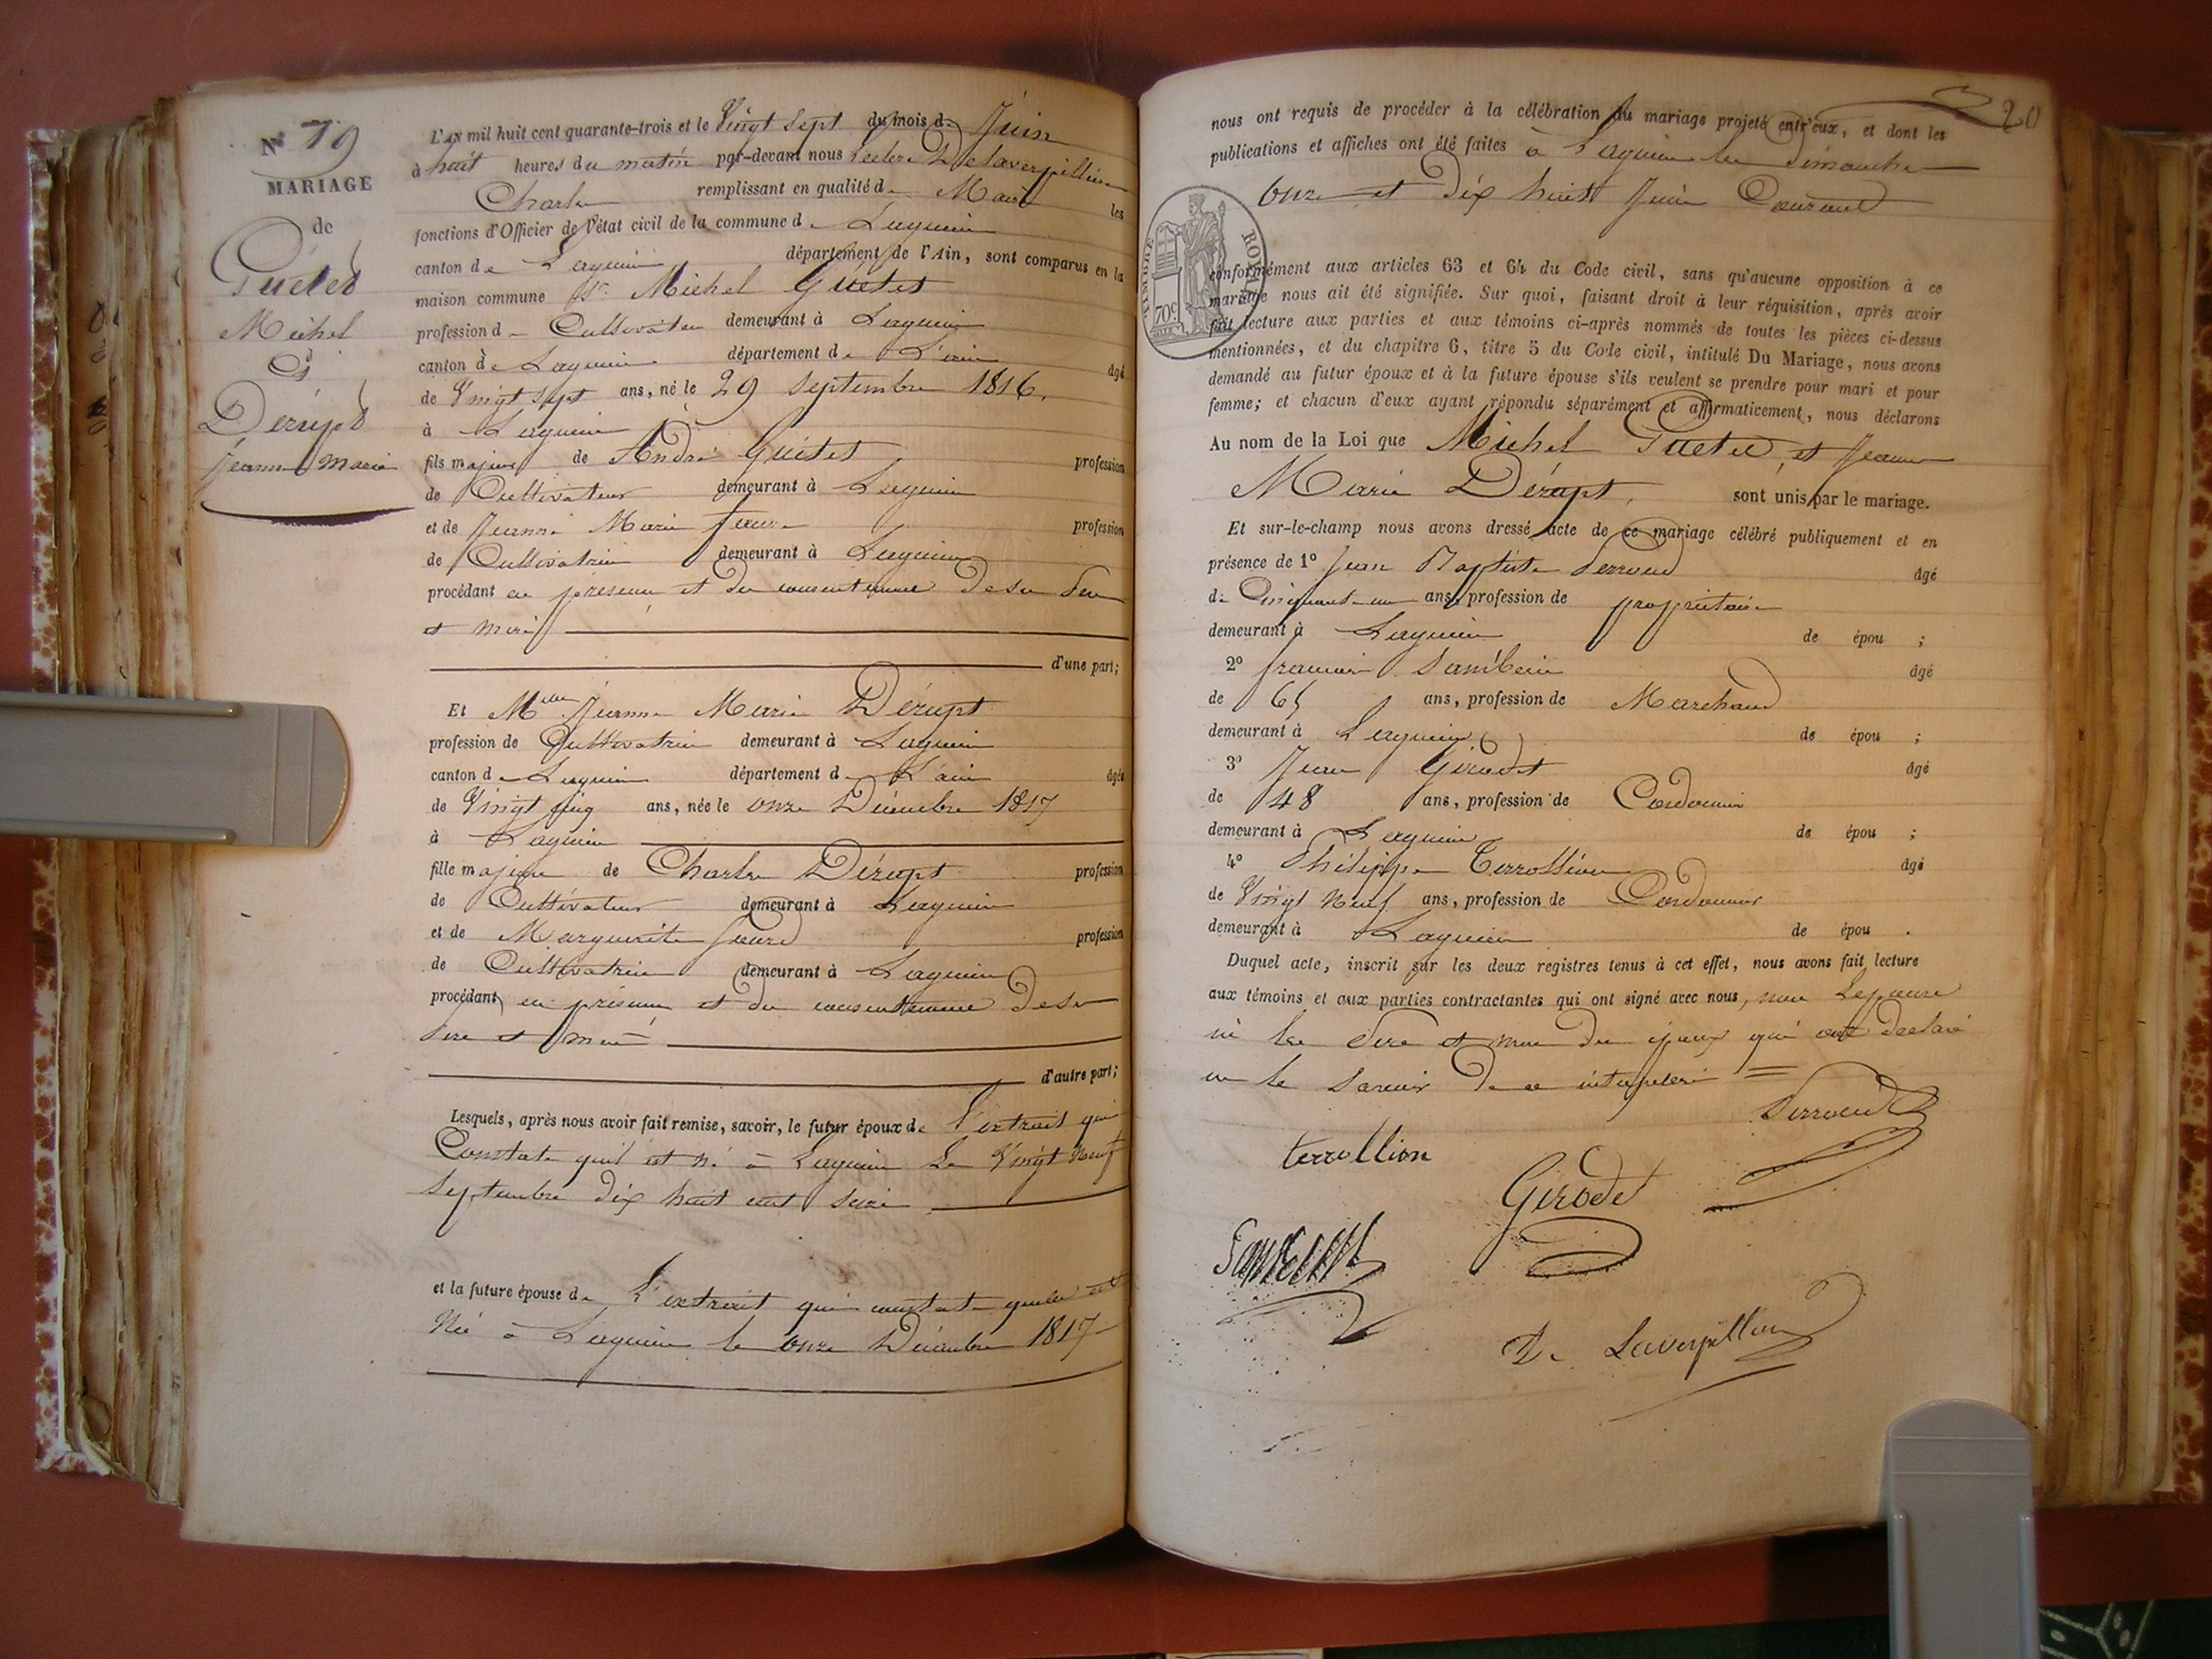 N° 19
MARIAGE
de
Guétet
Michel
Et
Dérupt
Jeanne Marie
L'an mil huit cent quarante-trois et le Vingt Sept du mois de Juin
à huit heures du matin par-devant nous Leclerc Delaverpillière
Charles remplissant en qualité de Maire les
fonctions d'Officier de l'état civil de la commune de Lagnieu
canton de Lagnieu département de l'Ain, sont comparus en la
maison commune Sr. Michel Guétet
profession de Cultivateur demeurant à Lagnieu
canton de Lagnieu département de L'ain âgé
de Vingt Sept ans, né le 29 Septembre 1816.
à Lagnieu
fils majeur de André Guétet profession
de Cultivateur demeurant à Lagnieu
et de Jeanne Marie profession
de Cultivatrice demeurant à Lagnieu
procédant en présence et du consentement de ses Père
et mère
d'une part;
Et Melle Jeanne Marie Dérupt
profession de Cultivatrice demeurant à Lagnieu
canton de Lagnieu département de L'ain âgée
de Vingt Cinq ans, née le onze Décembre 1817
à Lagnieu
fille majeure de Charles Dérupt profession
de Cultivateur demeurant à Lagnieu
et de Marguerite profession
de Cultivatrice demeurant à Lagnieu
procédant en présence et du consentement de ses
Père et mère
d'autre part;
Lesquels, après nous avoir fait remise, savoir, le futur époux de l'extrait qui
Constate qu'il est né à Lagnieu Le Vingt Neuf
Septembre dix huit cent Seize
et la future épouse de L'extrait qui constate quelle est
Née à Lagnieu le onze Décembre 1817
20
nous ont requis de procéder à la célébration du mariage projeté entr'eux, et dont les
publications et affiches ont été faites à Lagnieu les Dimanches
Onze et Dix huit Juin Courant
TIMBRE ROYAL
70c
conformément aux articles 63 et 64 du Code civil, sans qu'aucune opposition à ce
mariage nous ait été signifiée. Sur quoi, faisant droit à leur réquisition, après avoir
fait lecture aux parties et aux témoins ci-après nommés de toutes les pièces ci-dessus
mentionnées, et du chapitre 6, titre 5 du Code civil, intitulé Du Mariage, nous avons
demandé au futur époux et à la future épouse s'ils veulent se prendre pour mari et pour
femme; et chacun d'eux ayant répondu séparément et affirmativement, nous déclarons
Au nom de la Loi que Michel Guétet, et Jeanne
Marie Dérupt, sont unis par le mariage.
Et sur-le-champ nous avons dressé acte de ce mariage célébré publiquement et en
présence de 1° Jean Baptiste Perroud âgé
de Cinquante un ans, profession de propriétaire
demeurant à Lagnieu de épou ;
2° françois âgé
de 65 ans, profession de Marchand
demeurant à Lagnieu de épou ;
3° Jean Girodet âgé
de 48 ans, profession de Cordonnier
demeurant à Lagnieu de épou ;
4° Philippe Terrollion âgé
de Vingt Neuf ans, profession de Cordonnier
demeurant à Lagnieu de épou .
Duquel acte, inscrit sur les deux registres tenus à cet effet, nous avons fait lecture
aux témoins et aux parties contractantes qui ont signé avec nous, non les époux
ni les Père et mère des époux qui ont déclaré
ne le Savoir de ce interpelés
Perroud
terrollion
Girodet
De Laverpillière